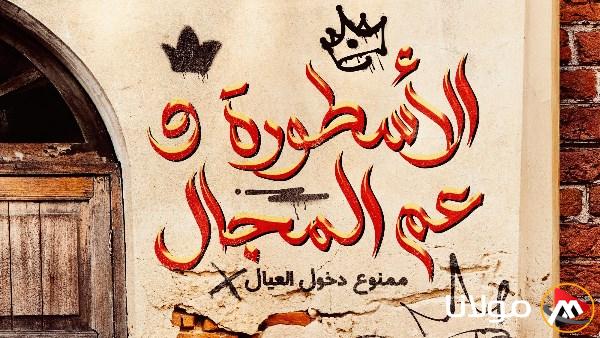 الأسطورة و
عم المجال
ممنوع دخول العيال
مولانا